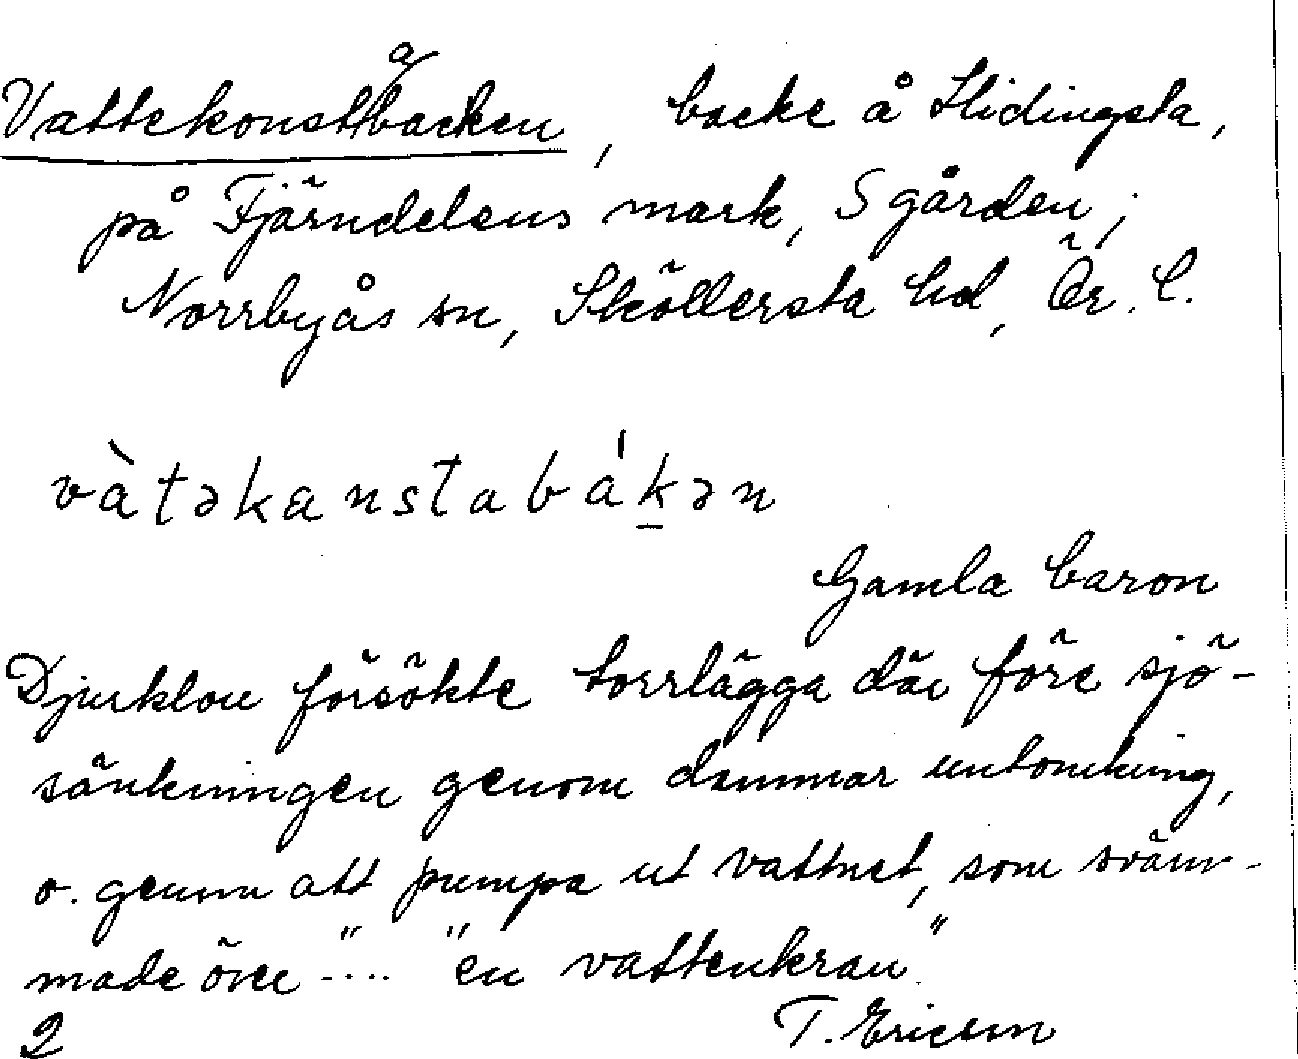 Vattekonstabacken, backe å Hidingsta,
på Fjärndelens mark, S gården;
Norrbyås sn, Sköllersta hd, Ör. l.
vàtəkanstabákən
Gamla baron
Djurklou försökte torrlägga där före sjö-
sänkningen genom dammar omkring,
o. genom att pumpa ut vattnet, som sväm-
made över –...." "en vattenkran".
2 T. Ericson